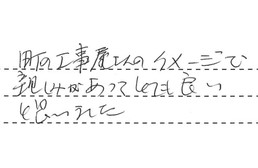 町の工事屋さんのイメージで
親しみがあってとても良い
と思いました